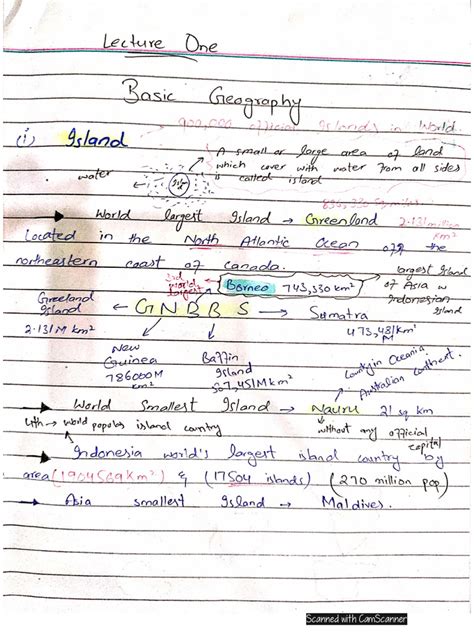 Lecture One
Basic Geography
900,000 official Islands in World
(i) Island
A small or large area of land
which cover with water from all sides
is called island
water
World largest Island → Greenland 2.131 million km²
Located in the North Atlantic Ocean off the
northeastern coast of Canada.
3rd world largest
Borneo 743,330 km²
largest Island of Asia
Indonesian Island
Greeland Island
2.131M km²
G N B B S
Sumatra
473,481 km²
New Guinea
786000M km²
Baffin Island
507,451M km²
Country in Oceania
Australian continent.
World Smallest Island → Nauru 21 sq km
4th → world populas island country
without any official capital
Indonesia world's largest island country by
area (1904569 Km²) & (17504 islands) (270 million pop)
Asia smallest Island → Maldives.
Scanned with CamScanner